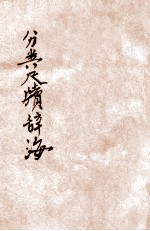 分类尺牍辞海